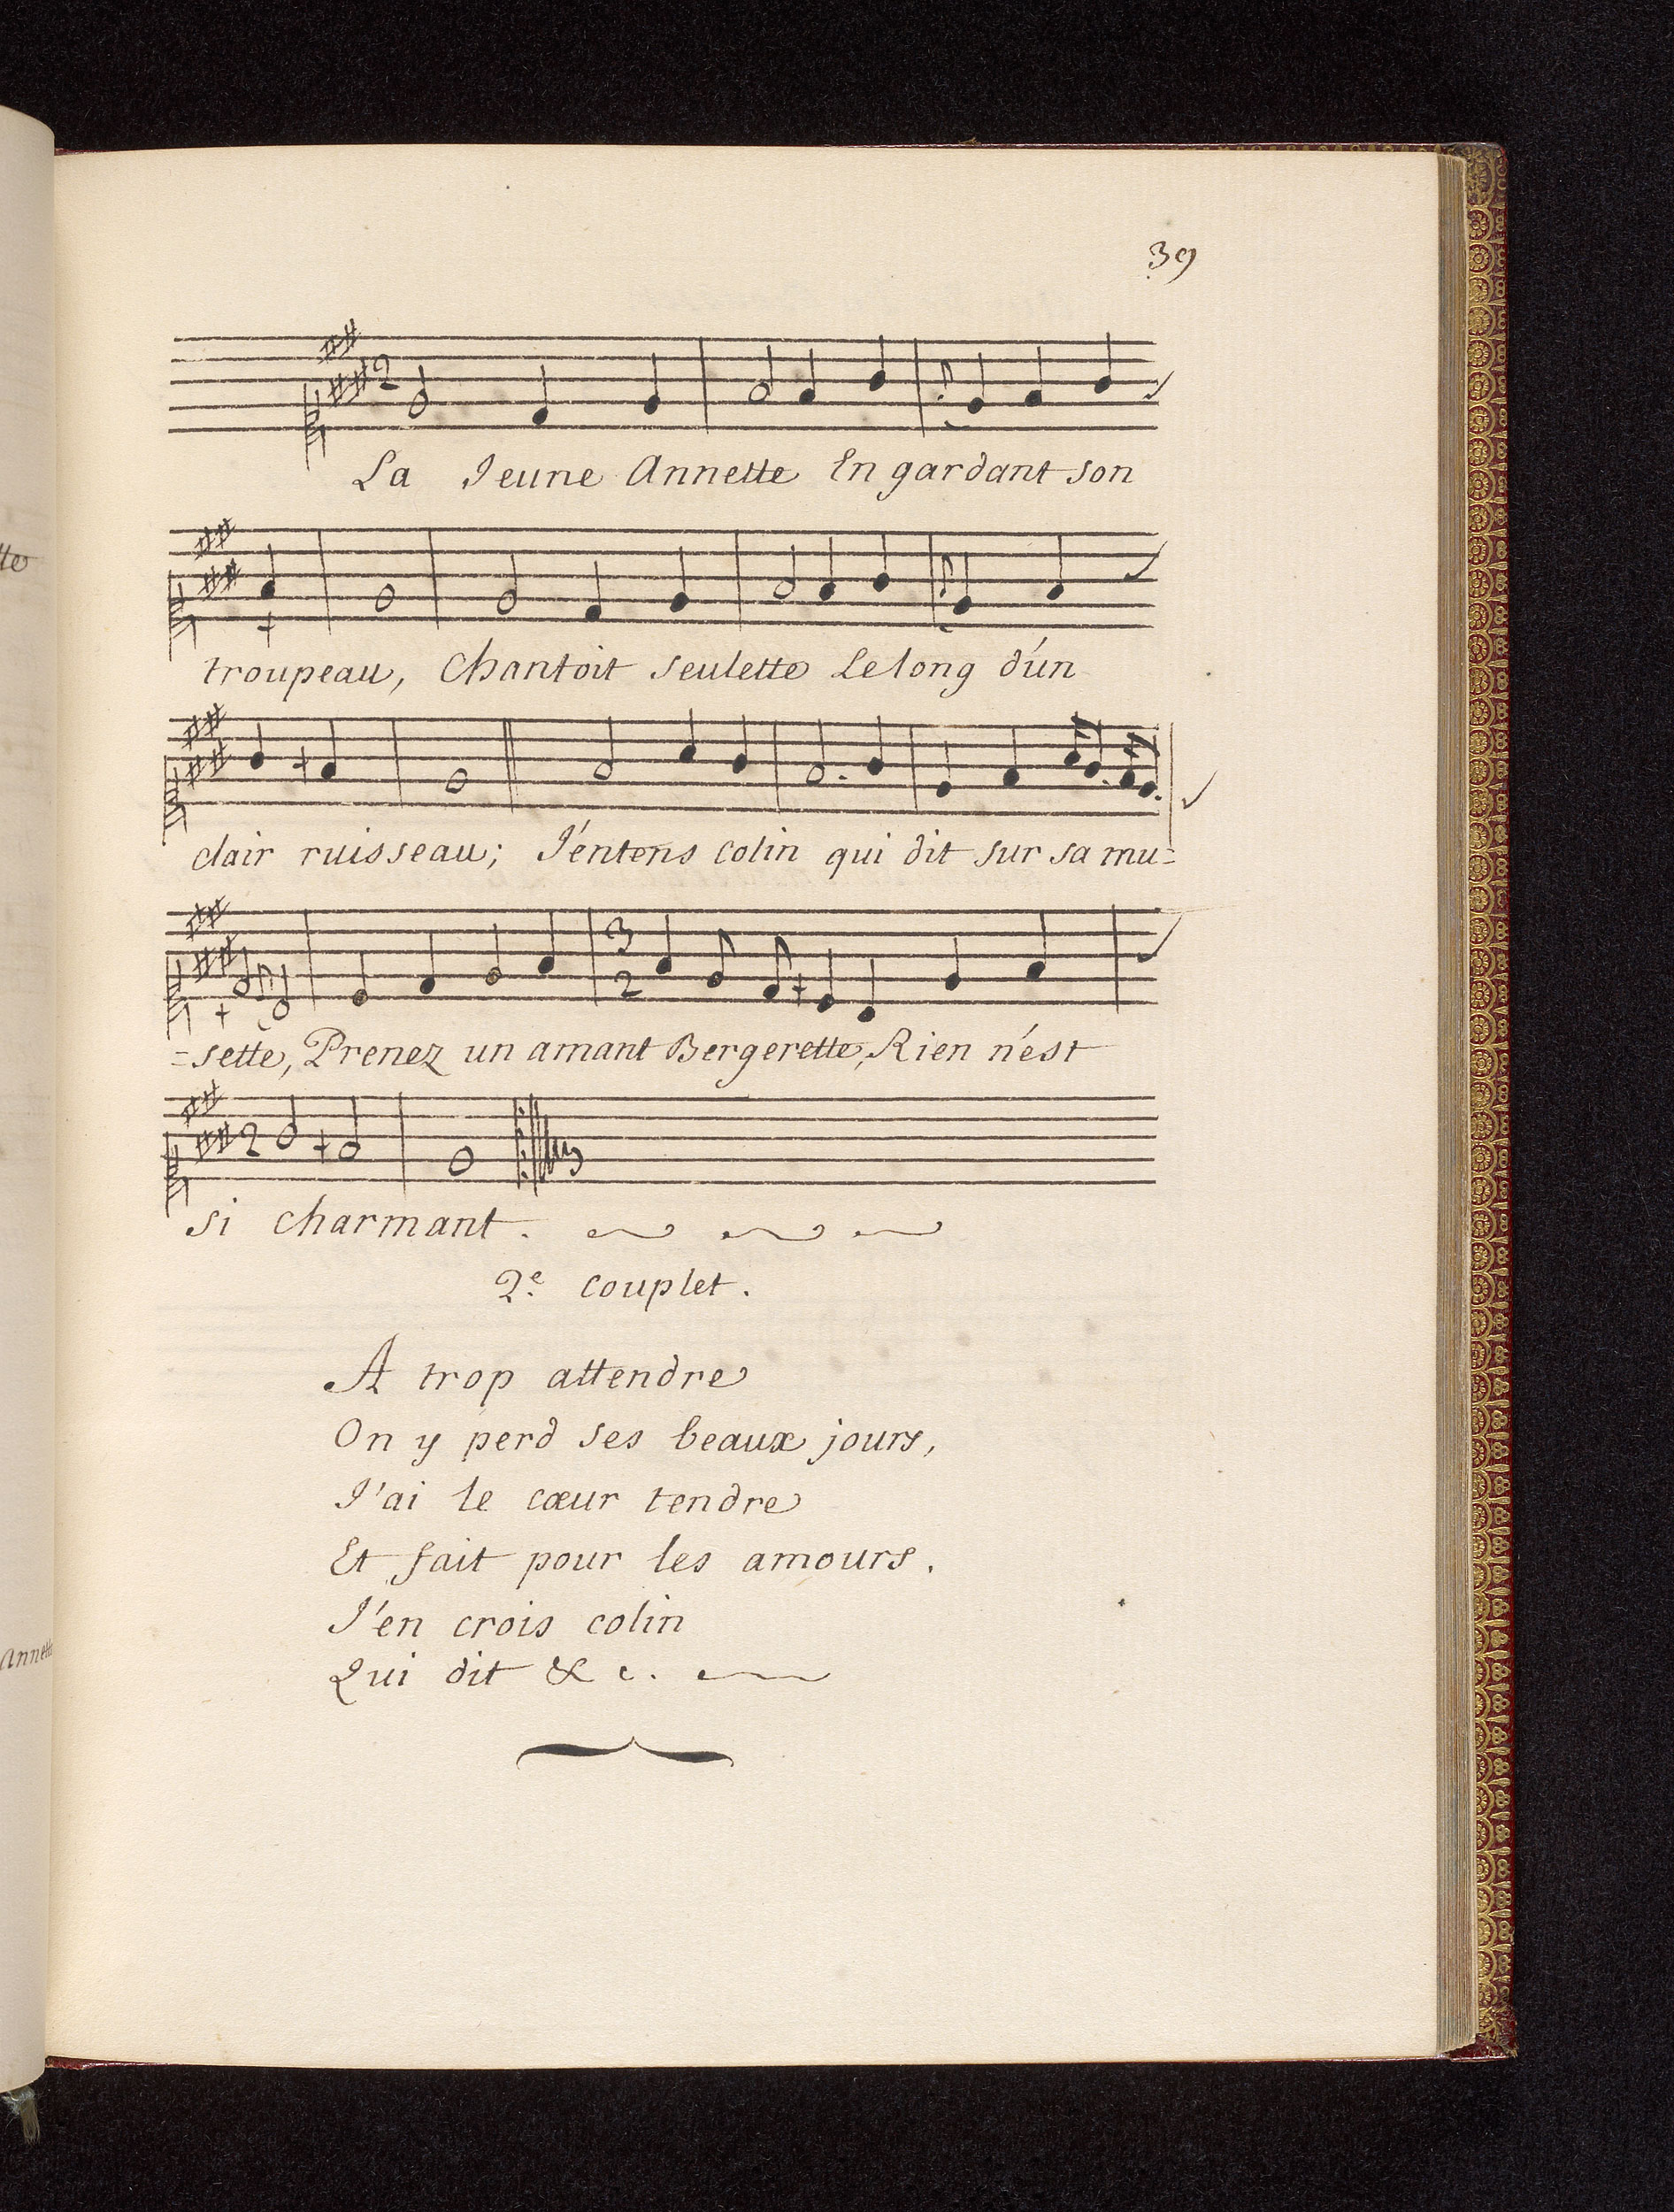 39
La Jeune Annette En gardant son
troupeau, Chantoit seulette Le long d'un
clair ruisseau; J'entens colin qui dit sur sa mu=
=sette, Prenez un amant Bergerette, Rien n'est
si charmant.
2.e couplet.
A trop attendre
On y perd ses beaux jours,
J'ai le cœur tendre
Et fait pour les amours.
J'en crois colin
Qui dit & c.